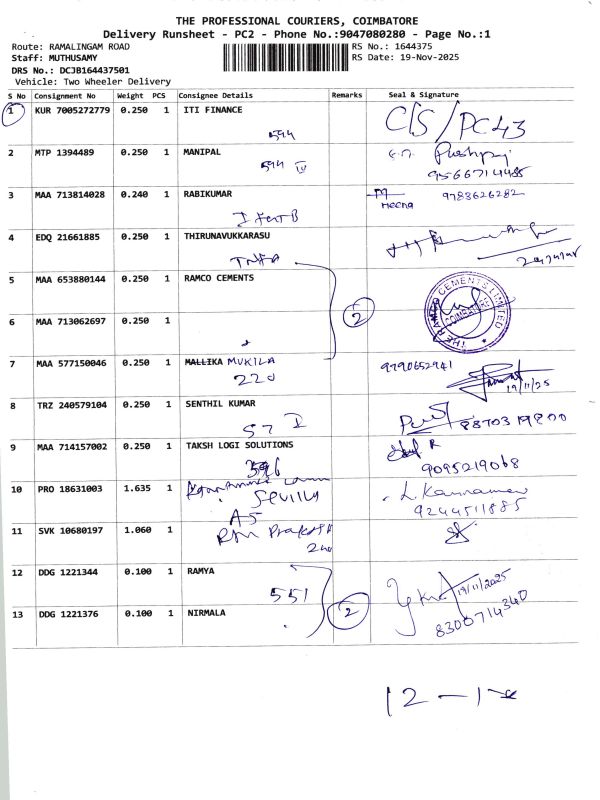 THE PROFESSIONAL COURIERS, COIMBATORE
Delivery Runsheet - PC2 - Phone No.:9047080280 - Page No.:1
Route: RAMALINGAM ROAD RS No.: 1644375
Staff: MUTHUSAMY RS Date: 19-Nov-2025
DRS No.: DCJB164437501
Vehicle: Two Wheeler Delivery
S No Consignment No Weight PCS Consignee Details Remarks Seal & Signature
1 KUR 7005272779 0.250 1 ITI FINANCE C/S/PC43
594
2 MTP 1394489 0.250 1 MANIPAL
594 IV 9566714485
3 MAA 713814028 0.240 1 RABIKUMAR 9783626282
Meena
4 EDQ 21661885 0.250 1 THIRUNAVUKKARASU
5 MAA 653880144 0.250 1 RAMCO CEMENTS
2 THE RAMCO CEMENTS LIMITED COIMBATORE
6 MAA 713062697 0.250 1
7 MAA 577150046 0.250 1 MALLIKA MUKILA 9790652941
220 19/11/25
8 TRZ 240579104 0.250 1 SENTHIL KUMAR
57 I
9 MAA 714157002 0.250 1 TAKSH LOGI SOLUTIONS
396 9095219068
10 PRO 18631003 1.635 1
Sevilla 9244511885
A5
11 SVK 10680197 1.060 1
12 DDG 1221344 0.100 1 RAMYA 19/11/2025
551
13 DDG 1221376 0.100 1 NIRMALA 2 8300714340
12 - 1